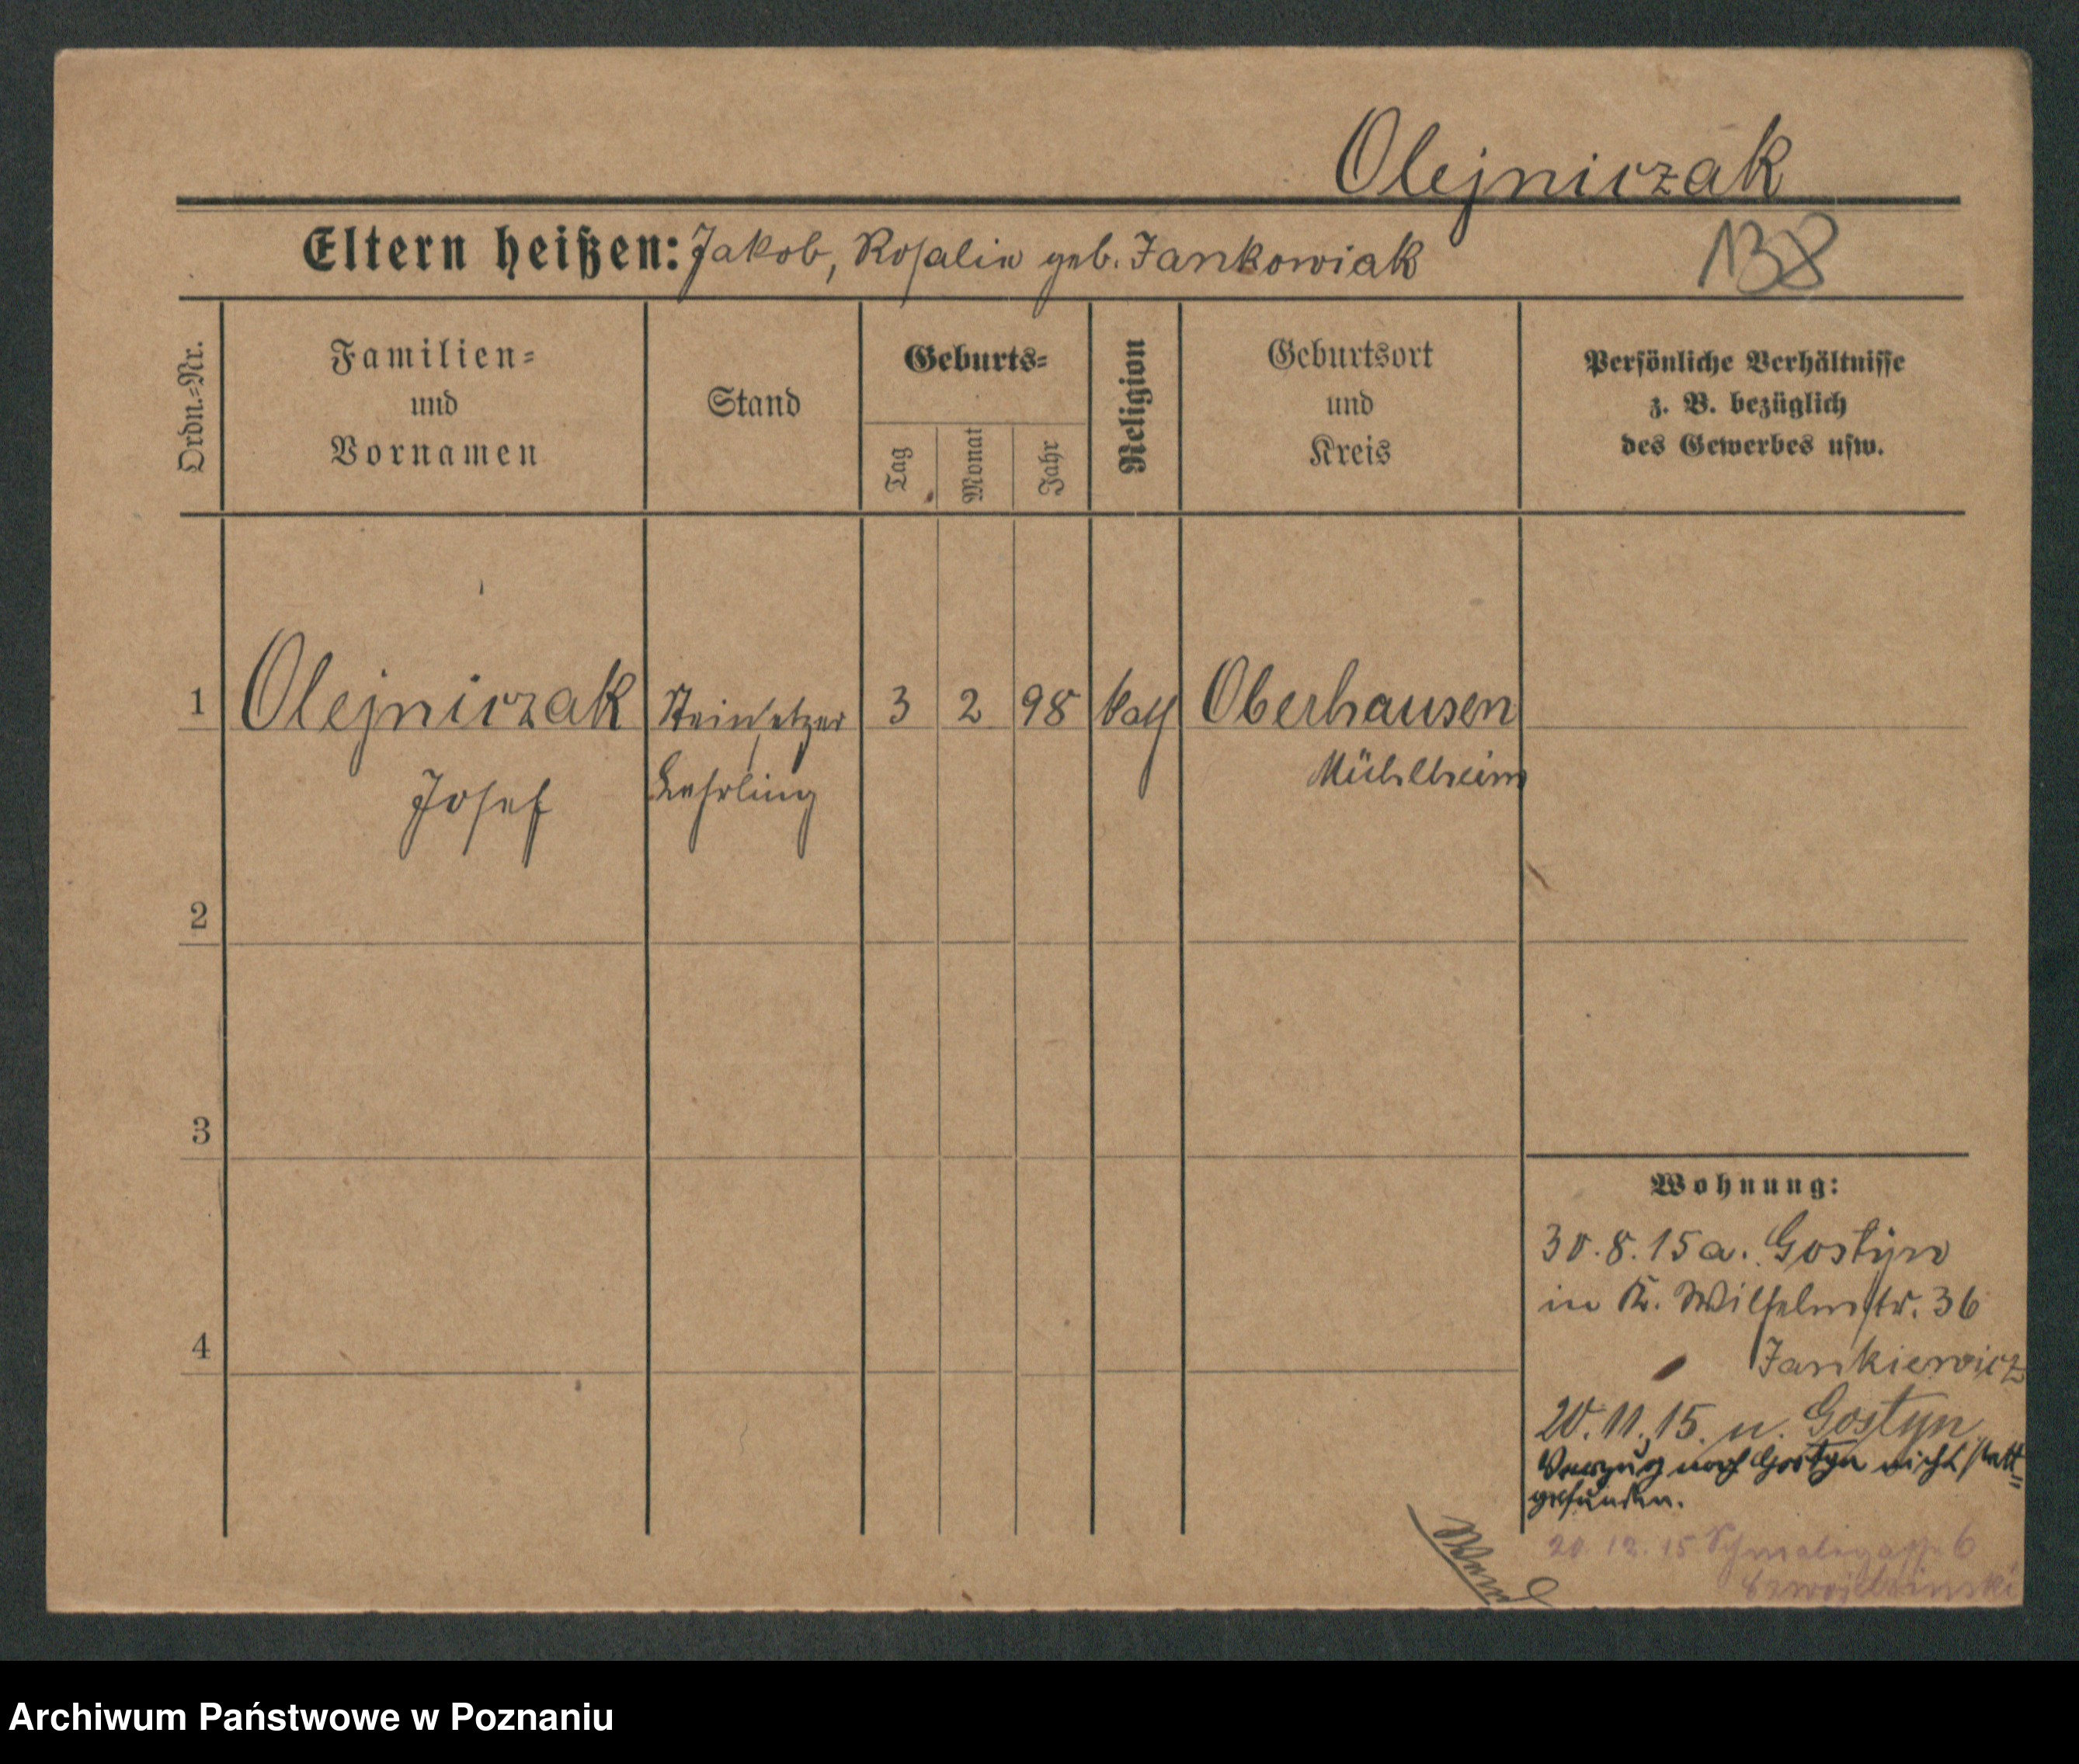 Olejniczak
Eltern heißen: Jakob, Rosalie geb. Jankowiak
138
Ordn.=Nr.
Familien=
und
Vornamen
Stand
Geburts=
Tag
Monat
Jahr
Religion
Geburtsort
und
Kreis
Persönliche Verhältnisse
z. B. bezüglich
des Gewerbes usw.
1 Olejniczak Steinsetzer 3 2 98 kath Oberhausen
Josef Lehrling Mühlheim
2
3
4
Wohnung:
30.8.15 a. Gostyn
in K. Wilhelmstr. 36
Jankiewicz
20.11.15. n. Gostyn
Verzug nach Gostyn nicht statt=
gefunden.
20.12.15 Schmalegasse 6
Wend
Archiwum Państwowe w Poznaniu